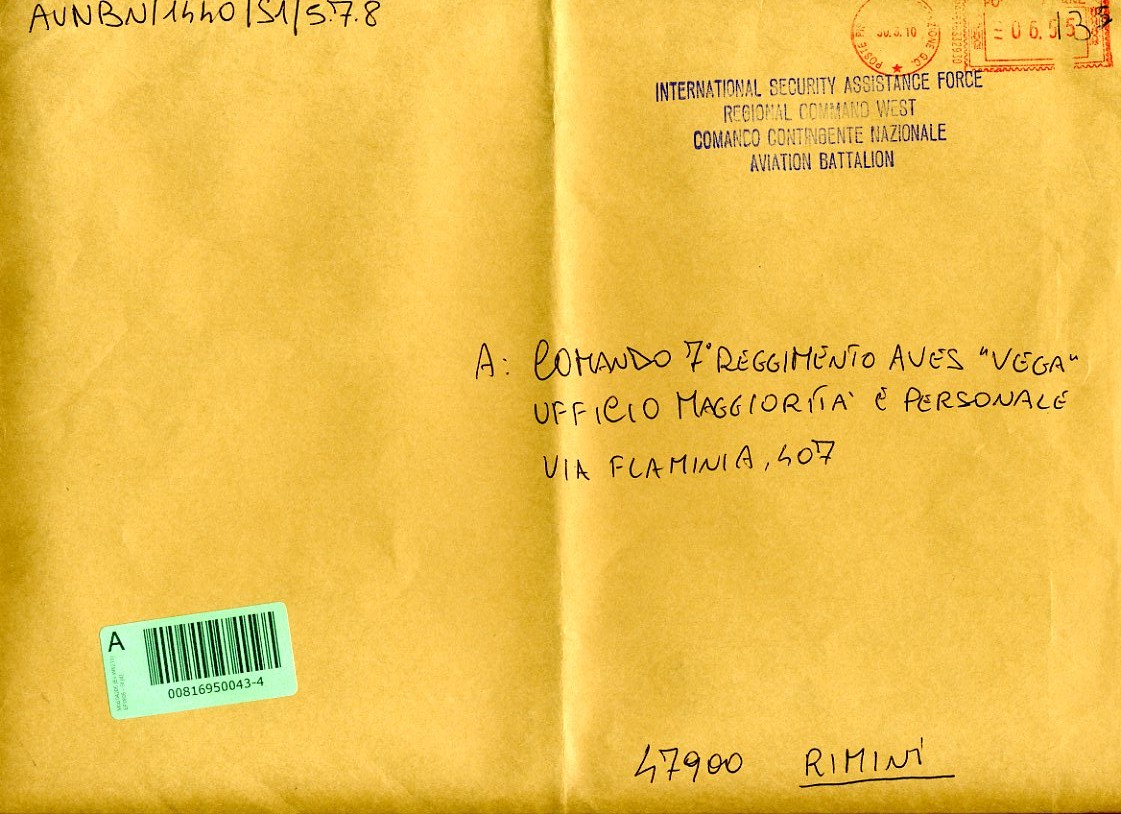 AVNBN/1440/S1/5.7.8
30.3.10
INTERNATIONAL SECURITY ASSISTANCE FORCE
REGIONAL COMMAND WEST
COMANDO CONTINGENTE NAZIONALE
AVIATION BATTALION
A: COMANDO 7° REGGIMENTO AVES "VEGA"
UFFICIO MAGGIORITA' E PERSONALE
VIA FLAMINIA, 407
A
00816950043-4
47900 RIMINI